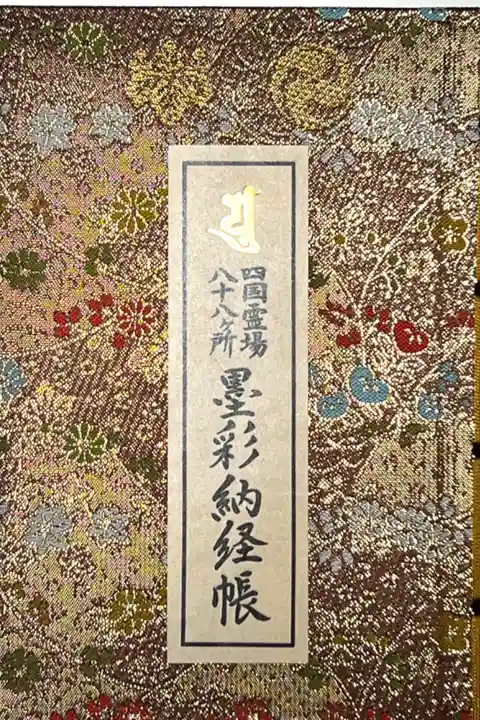 𑖮𑖿𑖨𑖱𑖾
四国霊場
八十八ヶ所
墨彩納経帳